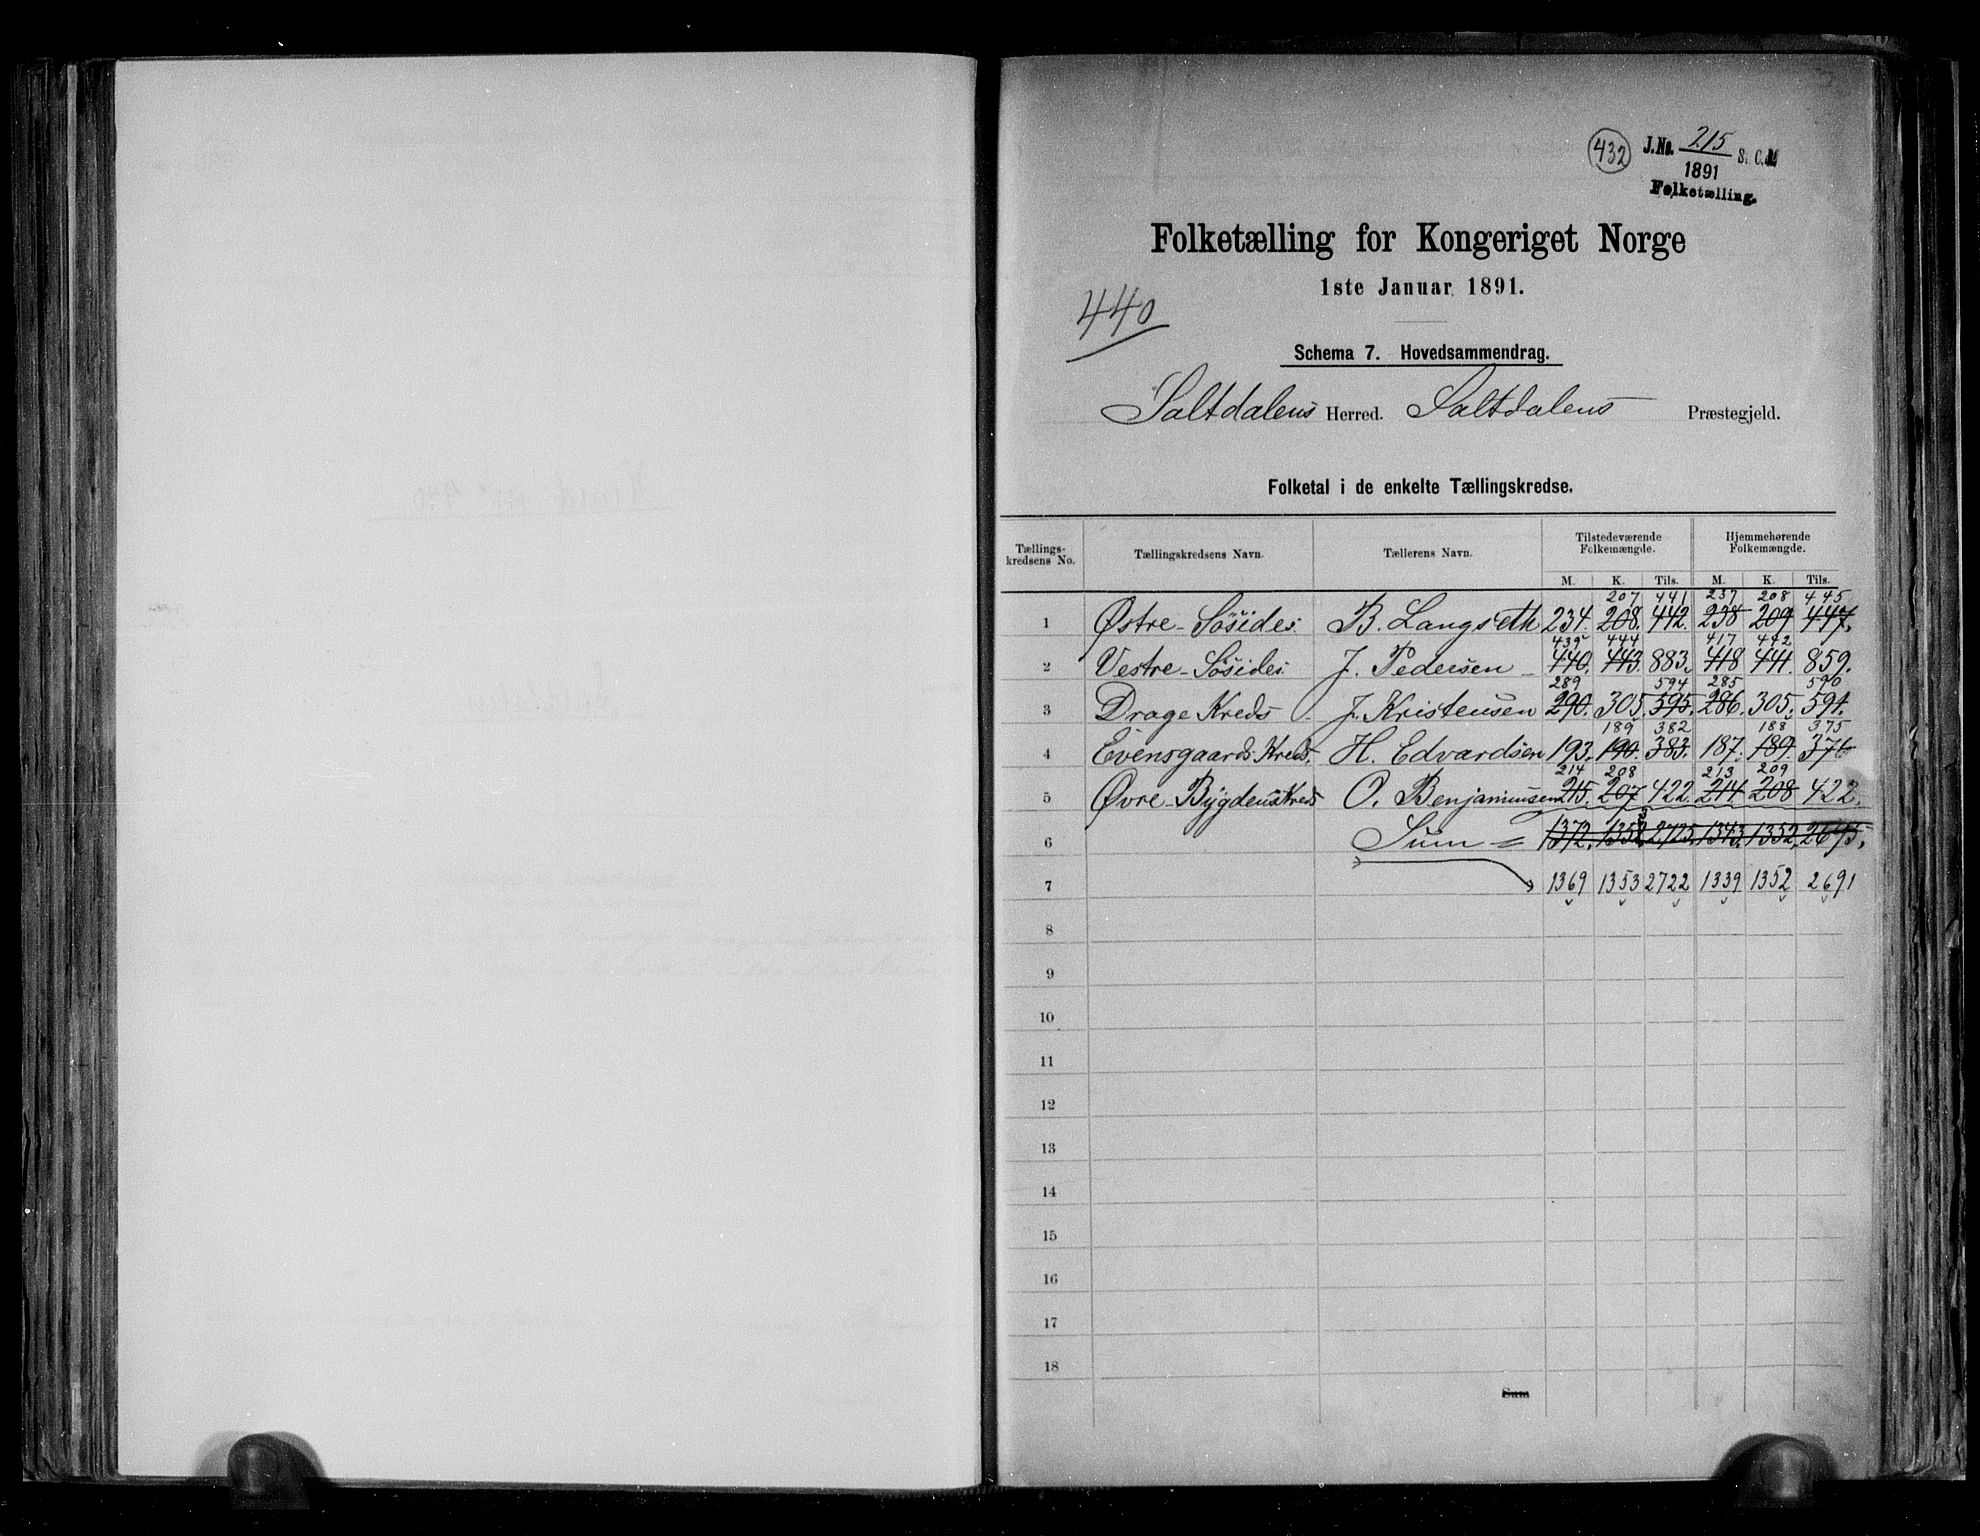 432 J.No. 215 S. C.
1891
Folketælling.
Folketælling for Kongeriget Norge
1ste Januar 1891.
440
Schema 7. Hovedsammendrag.
Saltdalens Herred. Saltdalens Præstegjeld.
Folketal i de enkelte Tællingskredse.
Tællings-kredsens No. Tællingskredsens Navn. Tællerens Navn. Tilstedeværende Folkemængde. Hjemmehørende Folkemængde.
M. K. Tils. M. K. Tils.
207 441 237 208 445
1 Østre-Søsides. B. Langseth 234. 208. 442. 238 209 447.
439 444 417 442
2 Vestre-Søsides. J. Pedersen 440. 443. 883. 418 441. 859.
289 594 285 590
3 Drage Kreds J. Kristensen 290. 305. 595. 286. 305. 591.
189 382 188 375
4 Evensgaards Kreds. H. Edvardsen 193. 190. 383. 187. 189. 376
214 208 213 209
5 Øvre-Bygdens Kreds O. Benjaminsen 215. 207 422. 214 208 422.
6 Sum = 1372. 1353. 2725. 1343. 1352. 2695.
7 1369 1353 2722 1339 1352 2691
8
9
10
11
12
13
14
15
16
17
18
Sum